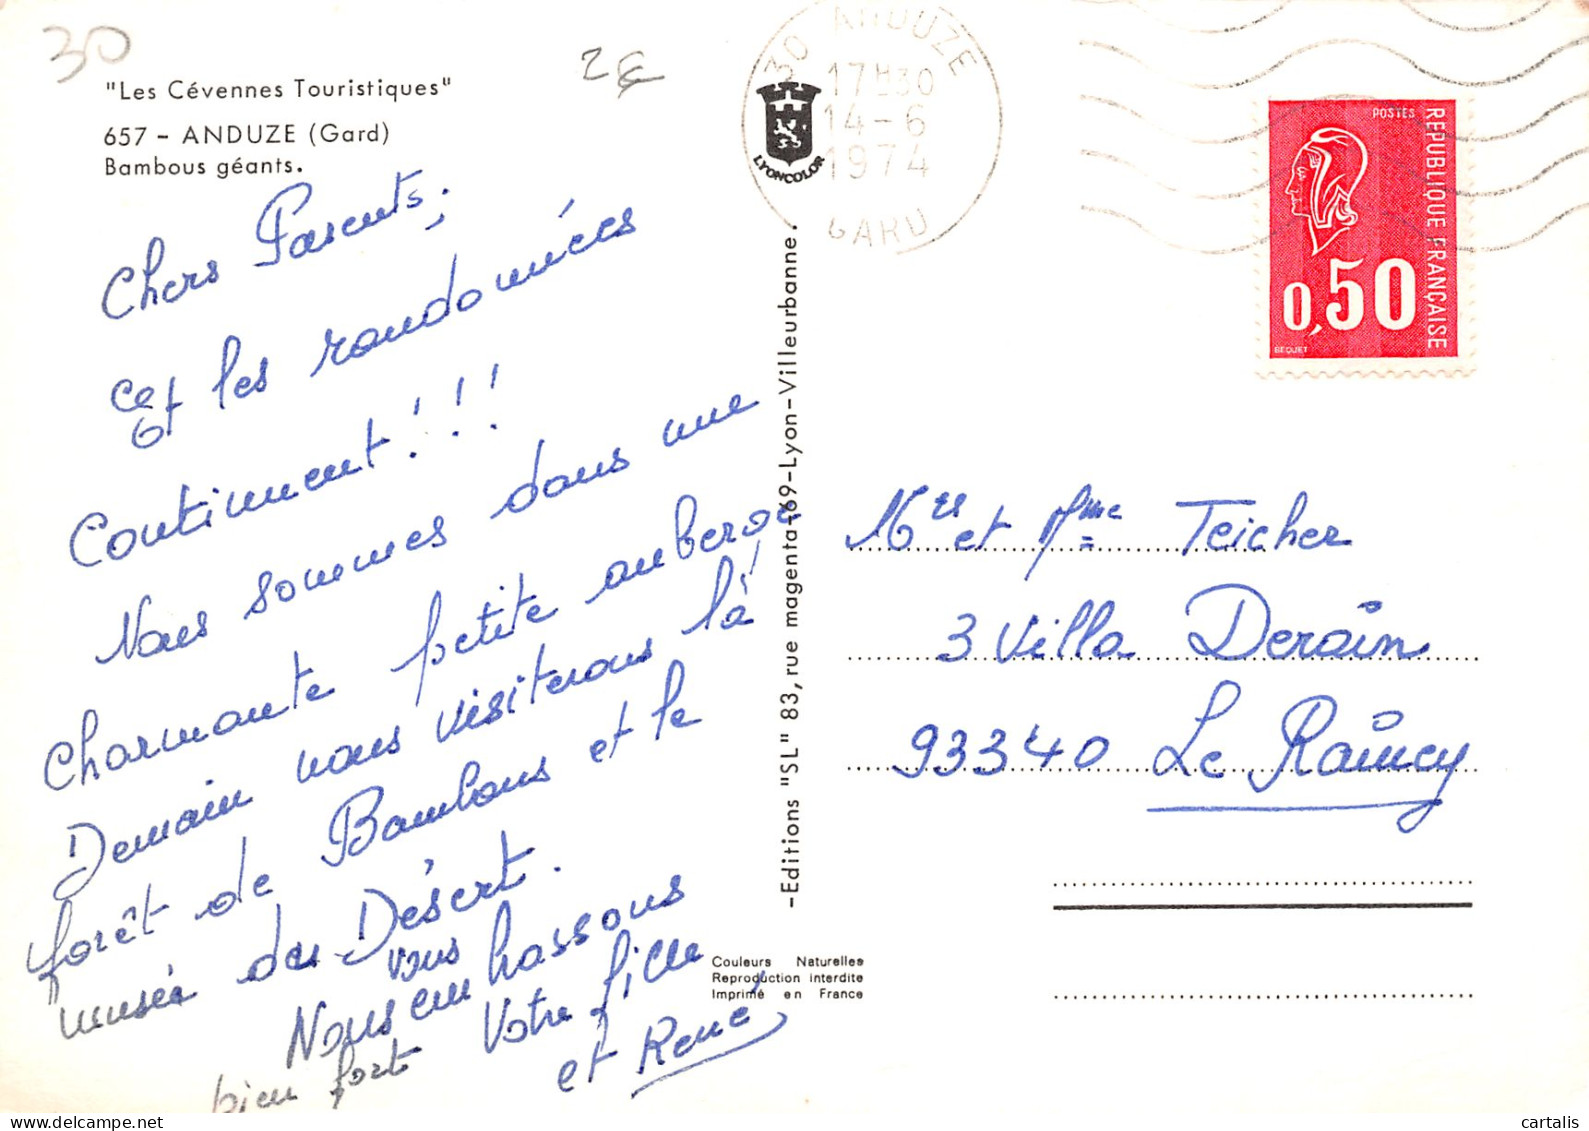 30
2€
"Les Cévennes Touristiques"
657 - ANDUZE (Gard)
Bambous géants.
Chers Parents,
Et les randonnées
Continuent!!!
Nous sommes dans une
charmante petite auberge
Demain nous visiterons là!
forêt de Bambous et le
musée du Désert.
vous
Nous embrassons
bien fort Votre fille
et René
30 ANDUZE
17H30
14-6
1974
GARD
LYONCOLOR
-Editions "SL" 83, rue magenta-69-Lyon-Villeurbanne.
Couleurs Naturelles
Reproduction interdite
Imprimé en France
POSTES
REPUBLIQUE FRANÇAISE
0,50
BEQUET
Mr et Mme Teicher
3 Villa Derain
93340 Le Raincy
cartalis